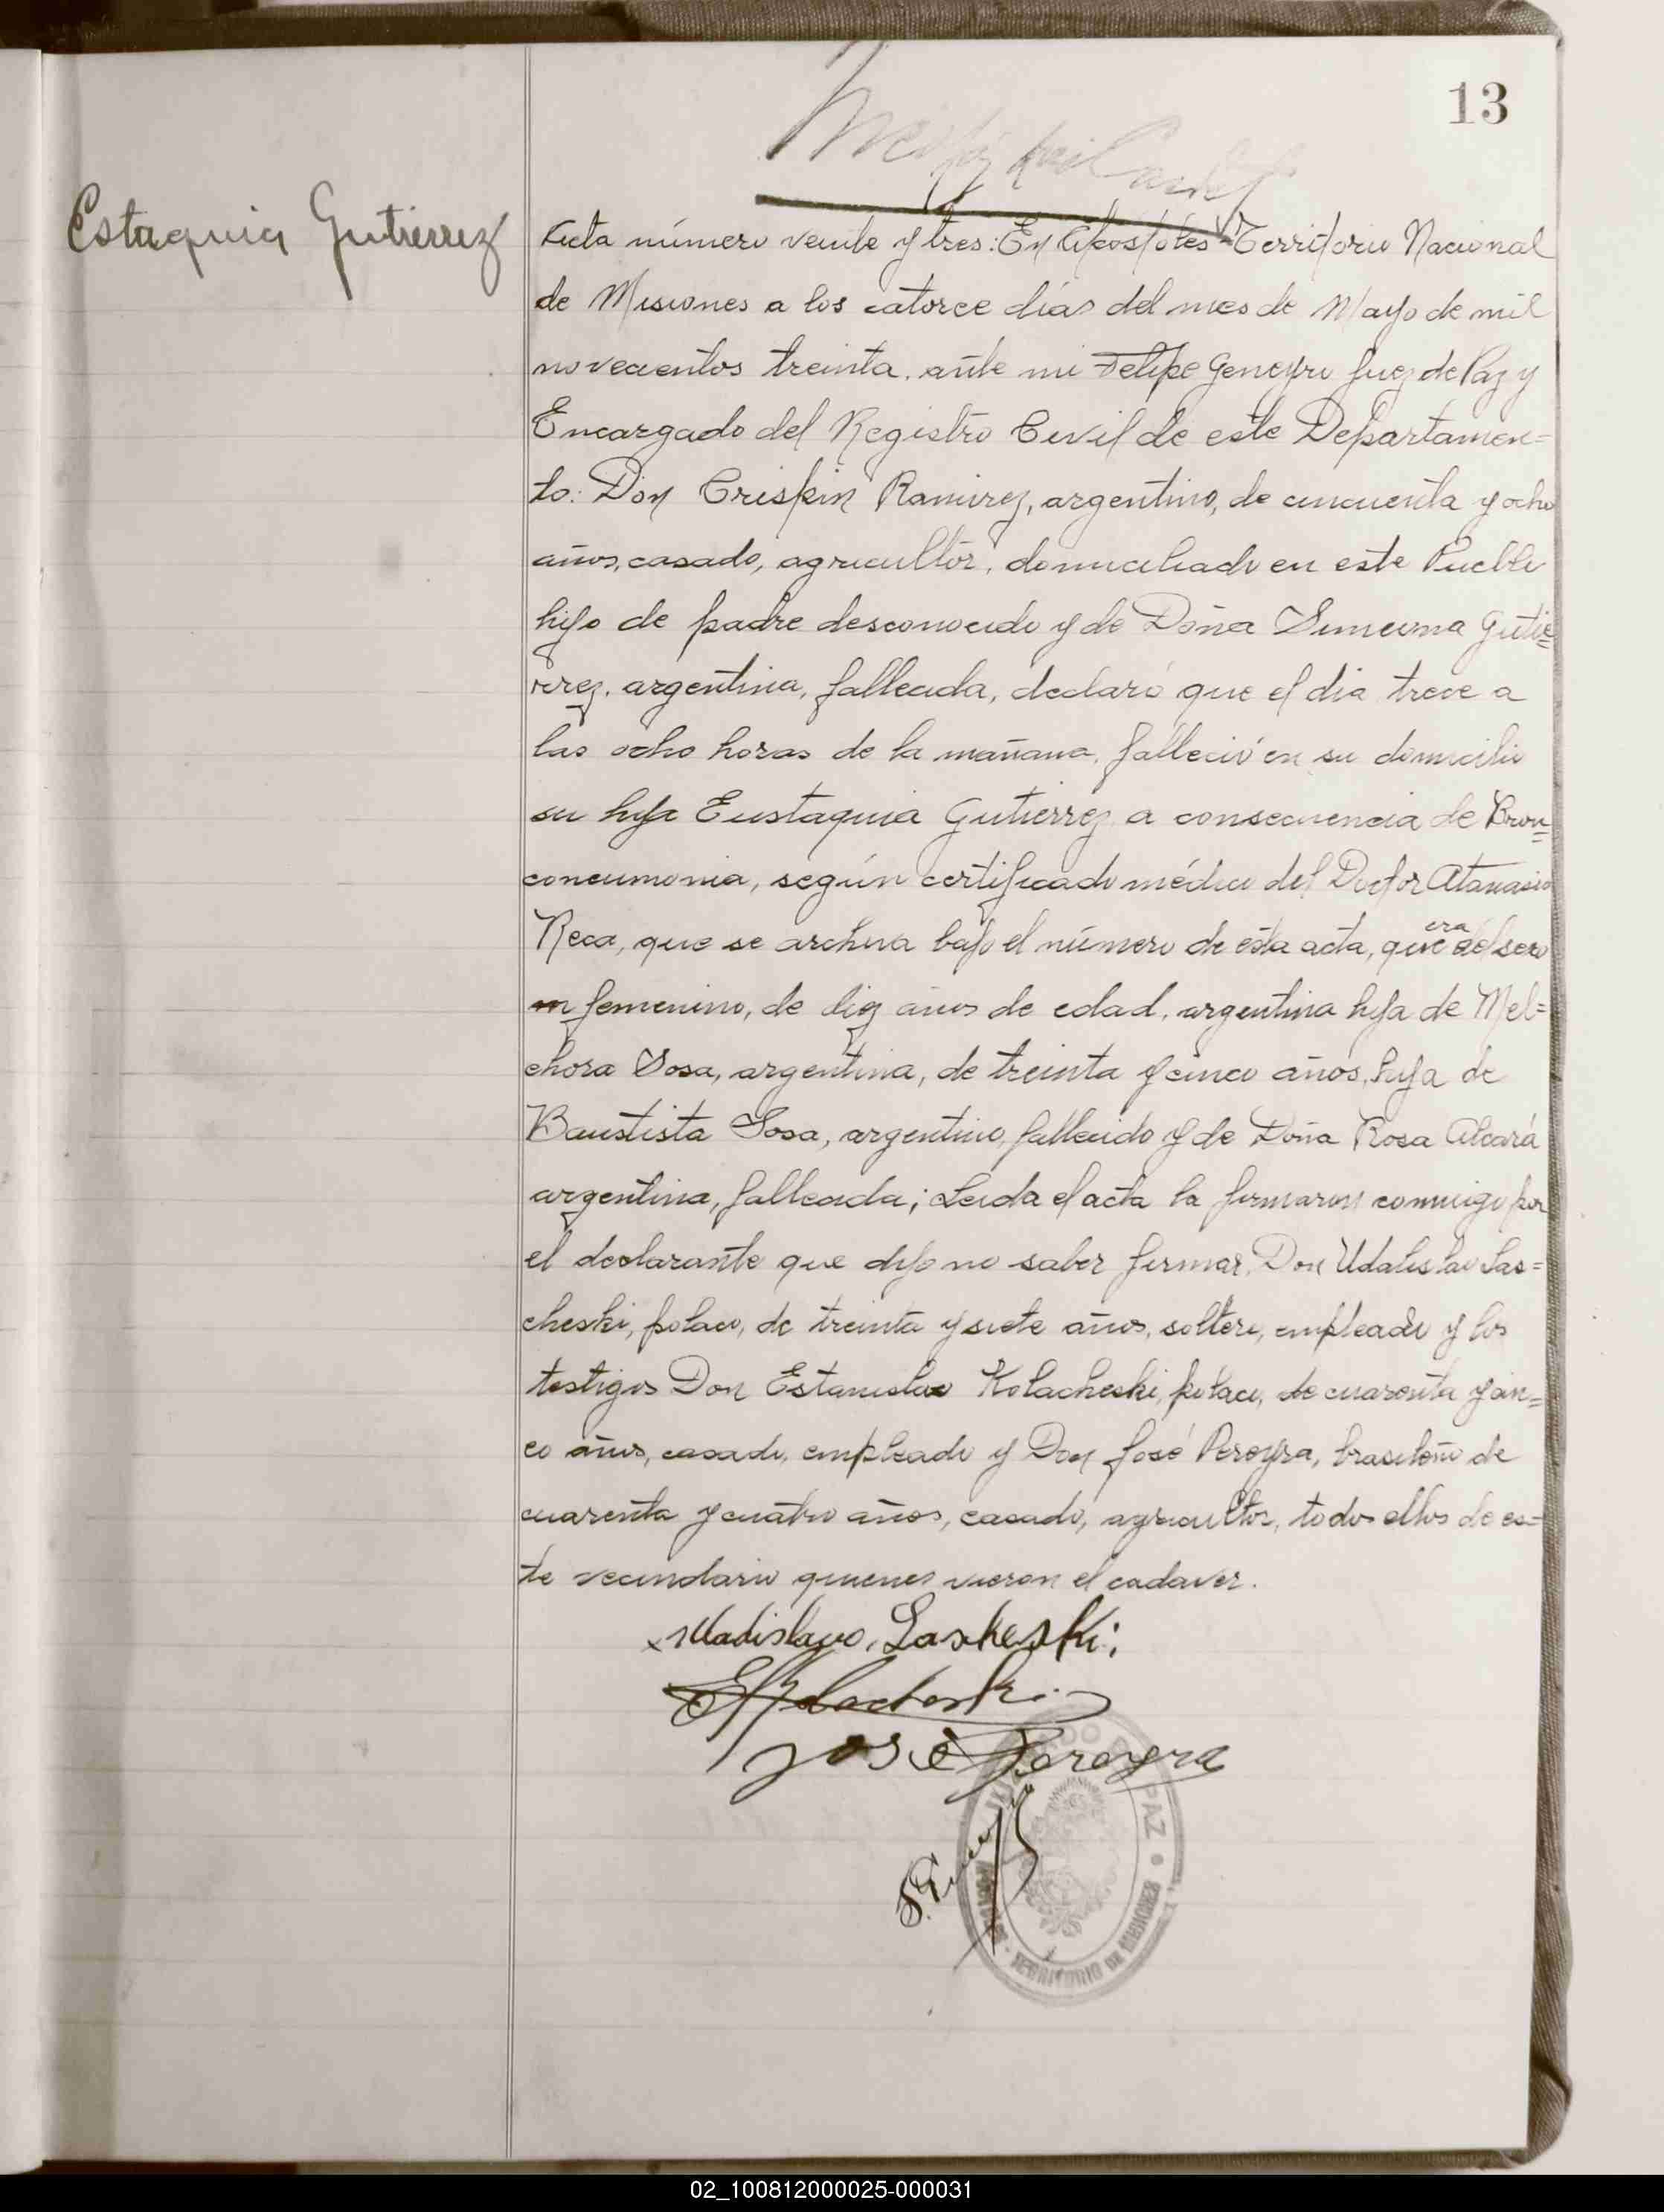 13
Estaquia Gutierrez
Acta número veinte y tres: En Apóstoles Territorio Nacional
de Misiones a los catorce días del mes de Mayo de mil
novecientos treinta, ante mi Felipe Geneyro Juez de Paz y
Encargado del Registro Civil de este Departamen=
to: Don Crispin Ramirez, argentino, de cincuenta y ocho
años, casado, agricultor, domiciliado en este Pueblo
hijo de padre desconocido y de Doña Simeona Gutie=
rrez, argentina, fallecida, declaró que el dia trece a
las ocho horas de la mañana, falleció en su domicilio
su hija Eustaquia Gutierrez a consecuencia de Bron=
coneumonia, según certificado médico del Doctor Atanasio
Reca, que se archiva bajo el número de esta acta, que era del sexo
m femenino, de diez años de edad, argentina hija de Mel=
chora Sosa, argentina, de treinta y cinco años, hija de
Baustista Sosa, argentino, fallecido y de Doña Rosa Alcará
argentina, fallecida; Leida el acta la firmaron conmigo por
el declarante que dijo no saber firmar, Don Udalislao Las=
cheski, polaco, de treinta y siete años, soltero, empleado y los
testigos Don Estanislao Kolacheski, polaco, de cuarenta y cin=
co años, casado, empleado y Don José Pereyra, brasileño de
cuarenta y cuatro años, casado, agricultor, todos ellos de es=
te vecindario quienes vieron el cadaver.
x Uladislavo, Laskeski;
EKolacheski
José Pereyra
PAZ
TERRITORIO DE MISIONES
02_100812000025-000031